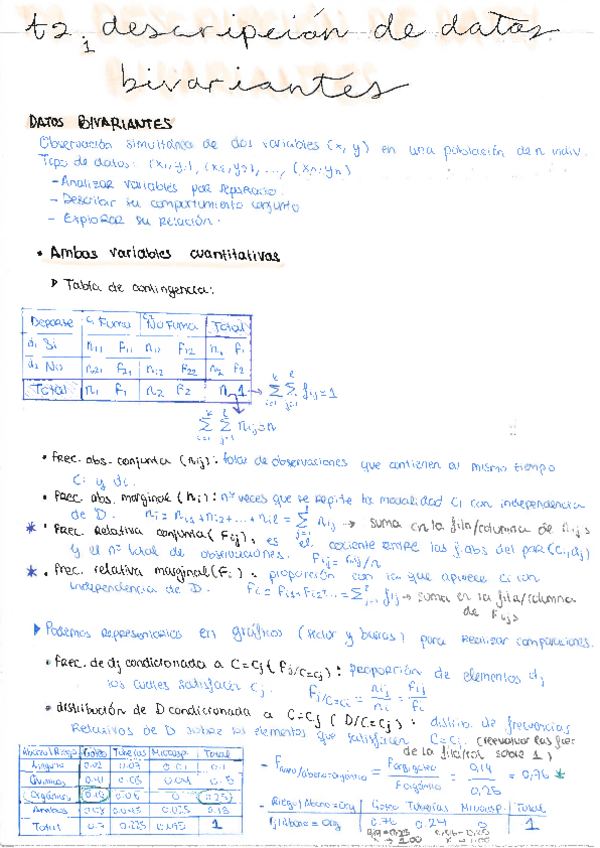 t2.1 descripción de datos
bivariantes
DATOS BIVARIANTES
Observación simultánea de dos variables (x, y) en una población de n indiv.
Tipo de datos: (x1,y1), (x2,y2), ..., (xn,yn)
- Analizar variables por separado.
- Describir su comportamiento conjunto
- Explorar su relación.
• Ambas variables cuantitativas
▷ Tabla de contingencia:
Deporte C1 Fuma C2 No Fuma Total
d1 Si n11 f11 n12 f12 n1 f1
d2 No n21 f21 n12 f22 n2 f2
Total n1 f1 n2 f2 n 1 → Σ Σ fij=1
Σ Σ nij=n
• Frec. abs. conjunta (nij): total de observaciones que contienen al mismo tiempo
Ci y di.
• Frec. abs. marginal (ni): nº veces que se repite la modalidad Ci con independencia
de D. ni = ni1+ni2+...+nil = Σ nij → suma en la fila/columna de nijs
* • Frec. Relativa conjunta (Fij): es el cociente entre las f.abs del par (Ci,dj)
y el nº total de observaciones. Fij = nij/n
* • Frec. relativa marginal (Fi): proporción con la que aparece Ci con
independencia de D. Fi = Fi1+Fi2+... = Σ fij → suma en la fila/columna
de Fijs
▷ Podemos representarlos en gráficos (sector y barras) para realizar comparaciones.
• Frec. de dj condicionada a C=Cj (Fj/C=Cj): proporción de elementos dj
los cuales satisfacen Cj. Fj/C=Ci = nij/ni = Fij/fi
• distribución de D condicionada a C=Cj (D/C=Cj): distrib. de frecuencias
Relativas de D sobre los elementos que satisfacen C=Cj. (reevaluar las frec
de la fila/col sobre 1)
Abono/Riego Goteo Tuberías Microasp. Total
Ninguno 0.02 0.07 0.01 0.1
Químicos
Orgánico 0.19 0.06 0 0.25
Ambos 0.18
Total 0.7 0.225 1
- = = 0,19/0,25 = 0,76 *
- Riego/Abono=Org Goteo Tuberías Microasp. Total
fj/Abono=Org 0.76 0.24 0 1